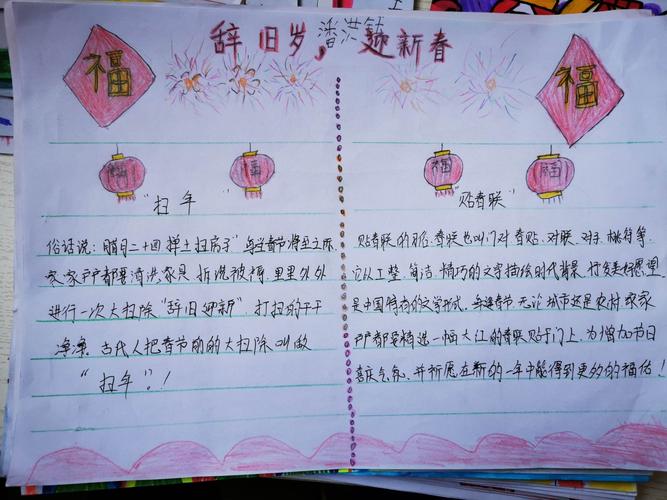 辞旧岁,迎新春
潘洪
福
福
福
福
"扫年"
俗话说:腊月二十四掸土扫房子"每当春节将至之际
家家户户都要清洗家具 拆洗被褥,里里外外
进行一次大扫除"辞旧迎新",打扫的干干
净净。古代人把春节前的大扫除叫做
"扫年"。!
"贴春联"
贴春联的习俗,春联也叫门对 春贴、对联、对子、桃符等,
它以工整、简洁、精巧的文字描绘时代背景,抒发美好愿望
是中国特有的文学形式。每逢春节,无论城市还是农村 家家
户户都要精选一幅大红的春联贴于门上,为增加节日
喜庆气氛,并祈愿在新的一年中能得到更多的福佑!